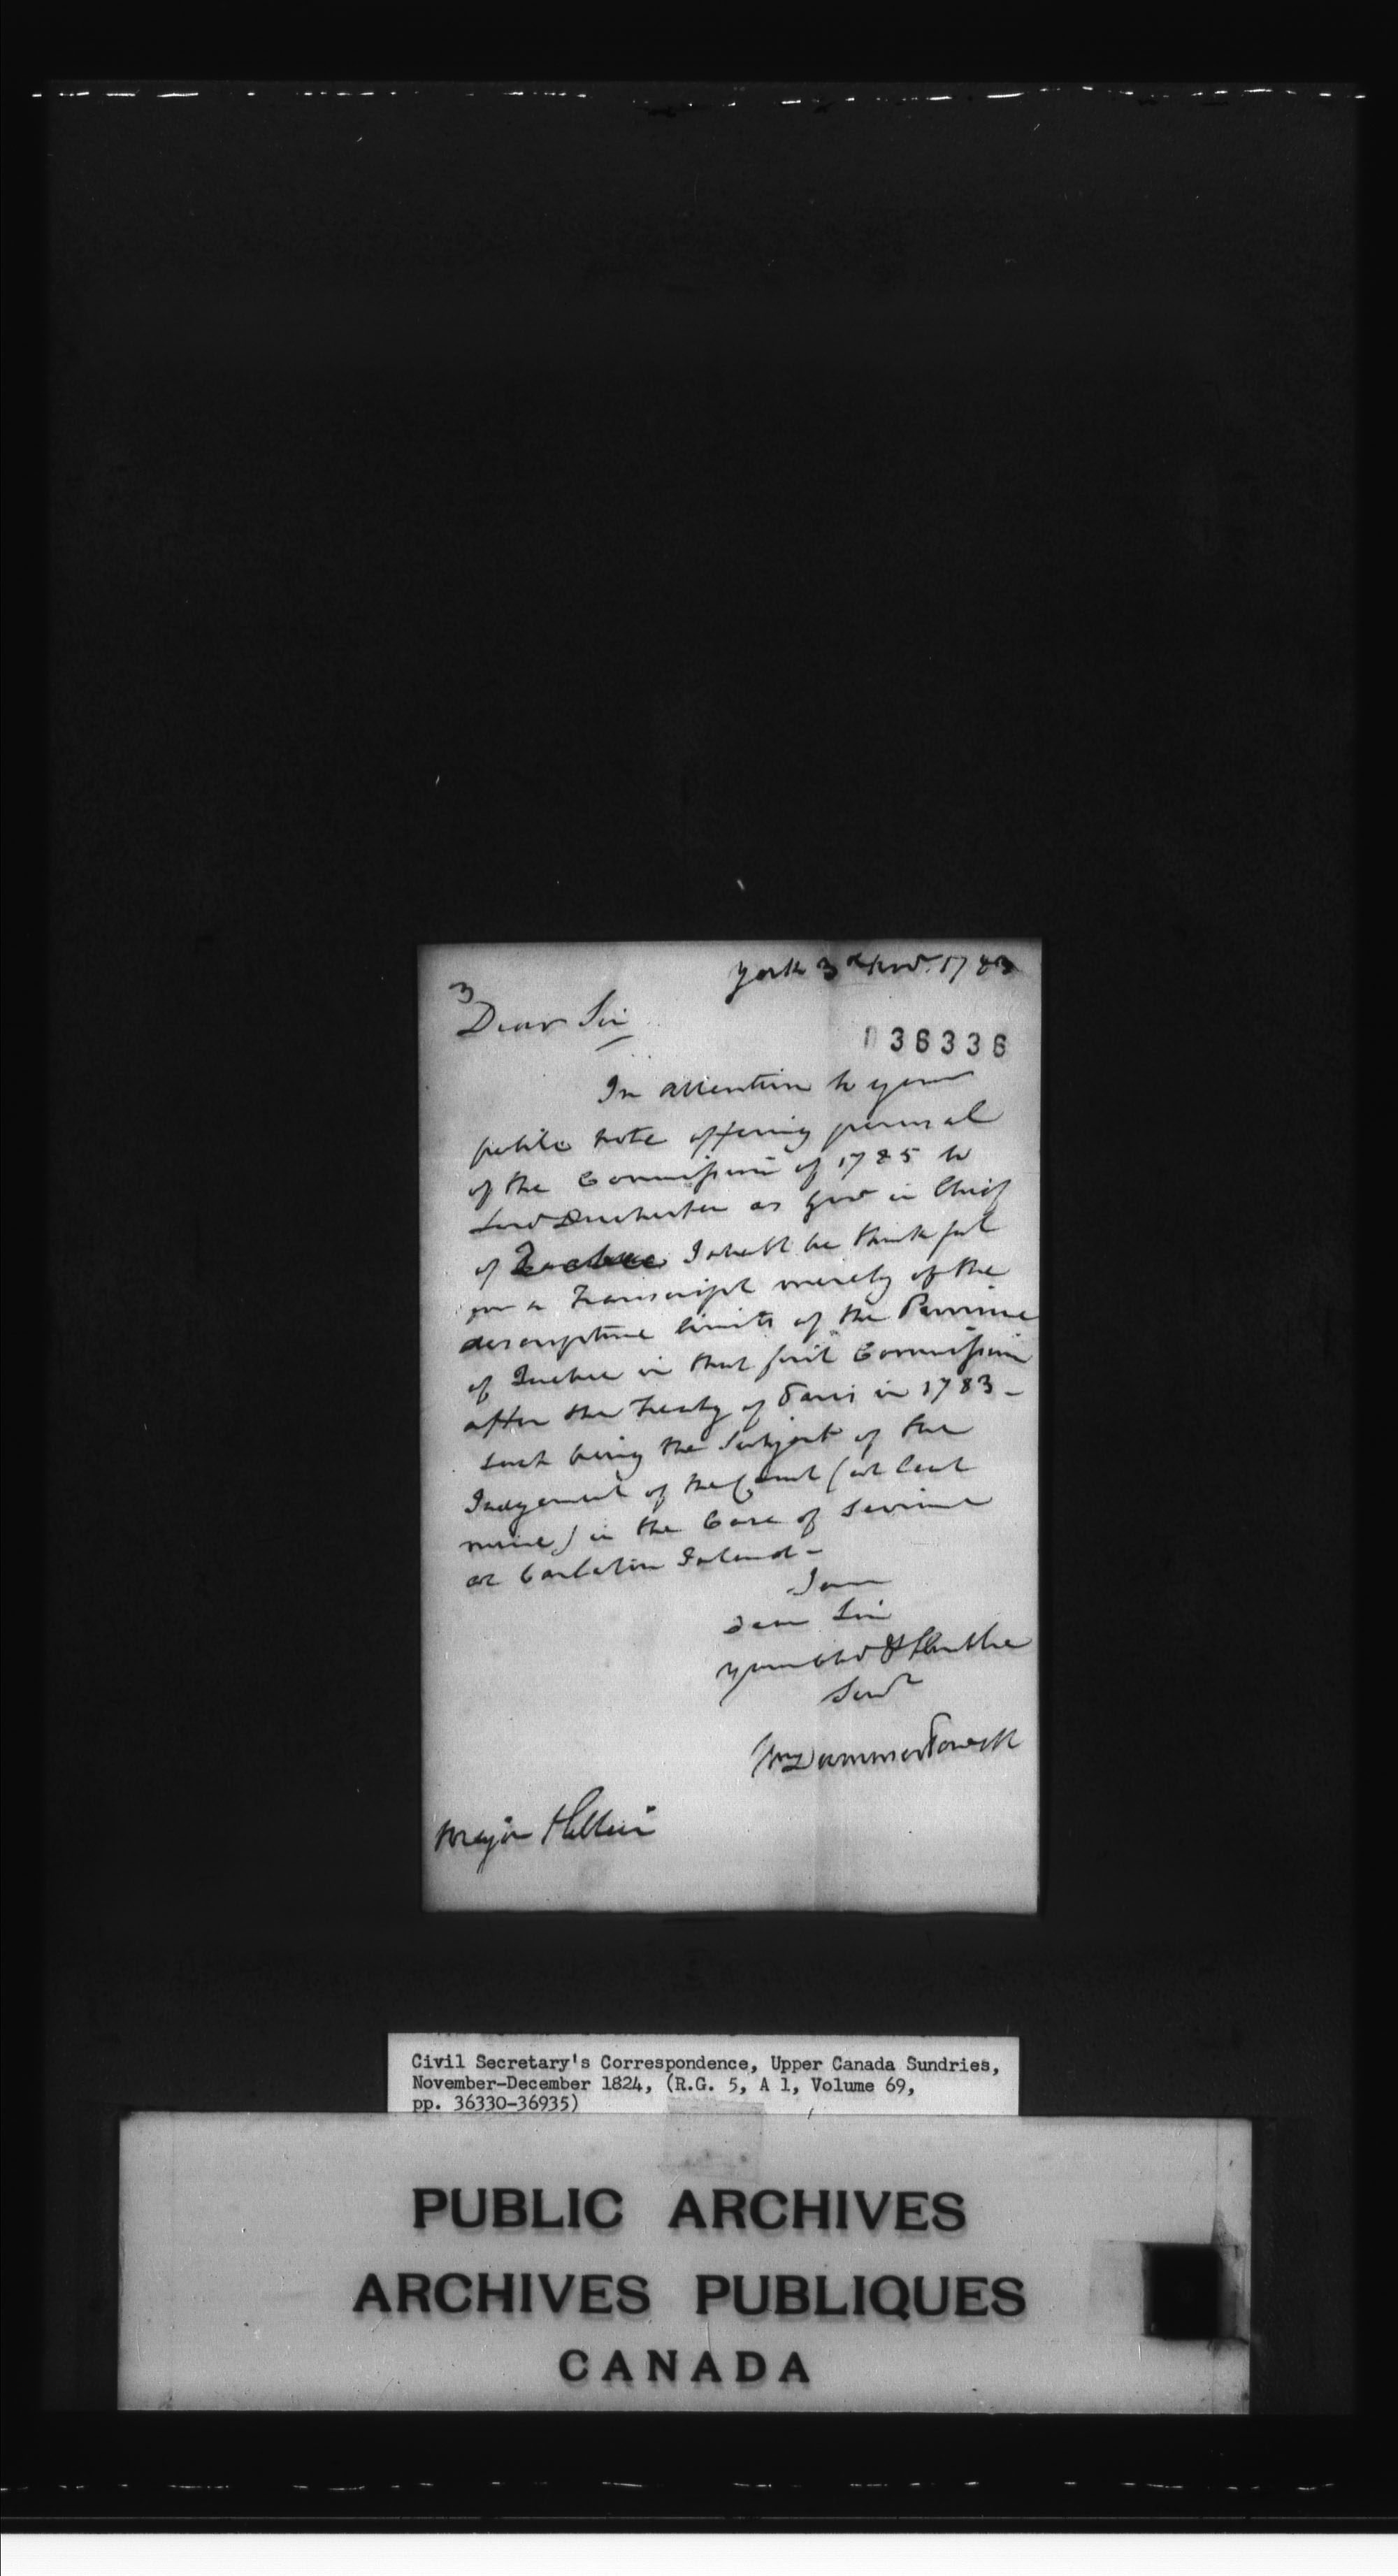 York 3d Nov. 1783
3
Dear Sir
036336
In attention to your
polite note offering perusal
of the Commission of 1785 to
Lord Dorchester as Gov in Chief
of Quebec I shall be thankful
for a Transcript merely of the
descriptive limits of the Province
of Quebec in that first Commission
after the Treaty of Paris in 1783 -
such being the Subject of the
Judgement of the Court (at least
mine) in the Case of Seizure
at Carleton Island -
I am
Dear Sir
your obd & Humble
Servt
Wm Dummer Powell
Major Hillier
Civil Secretary's Correspondence, Upper Canada Sundries,
November-December 1824, (R.G. 5, A 1, Volume 69,
pp. 36330-36935)
PUBLIC ARCHIVES
ARCHIVES PUBLIQUES
CANADA